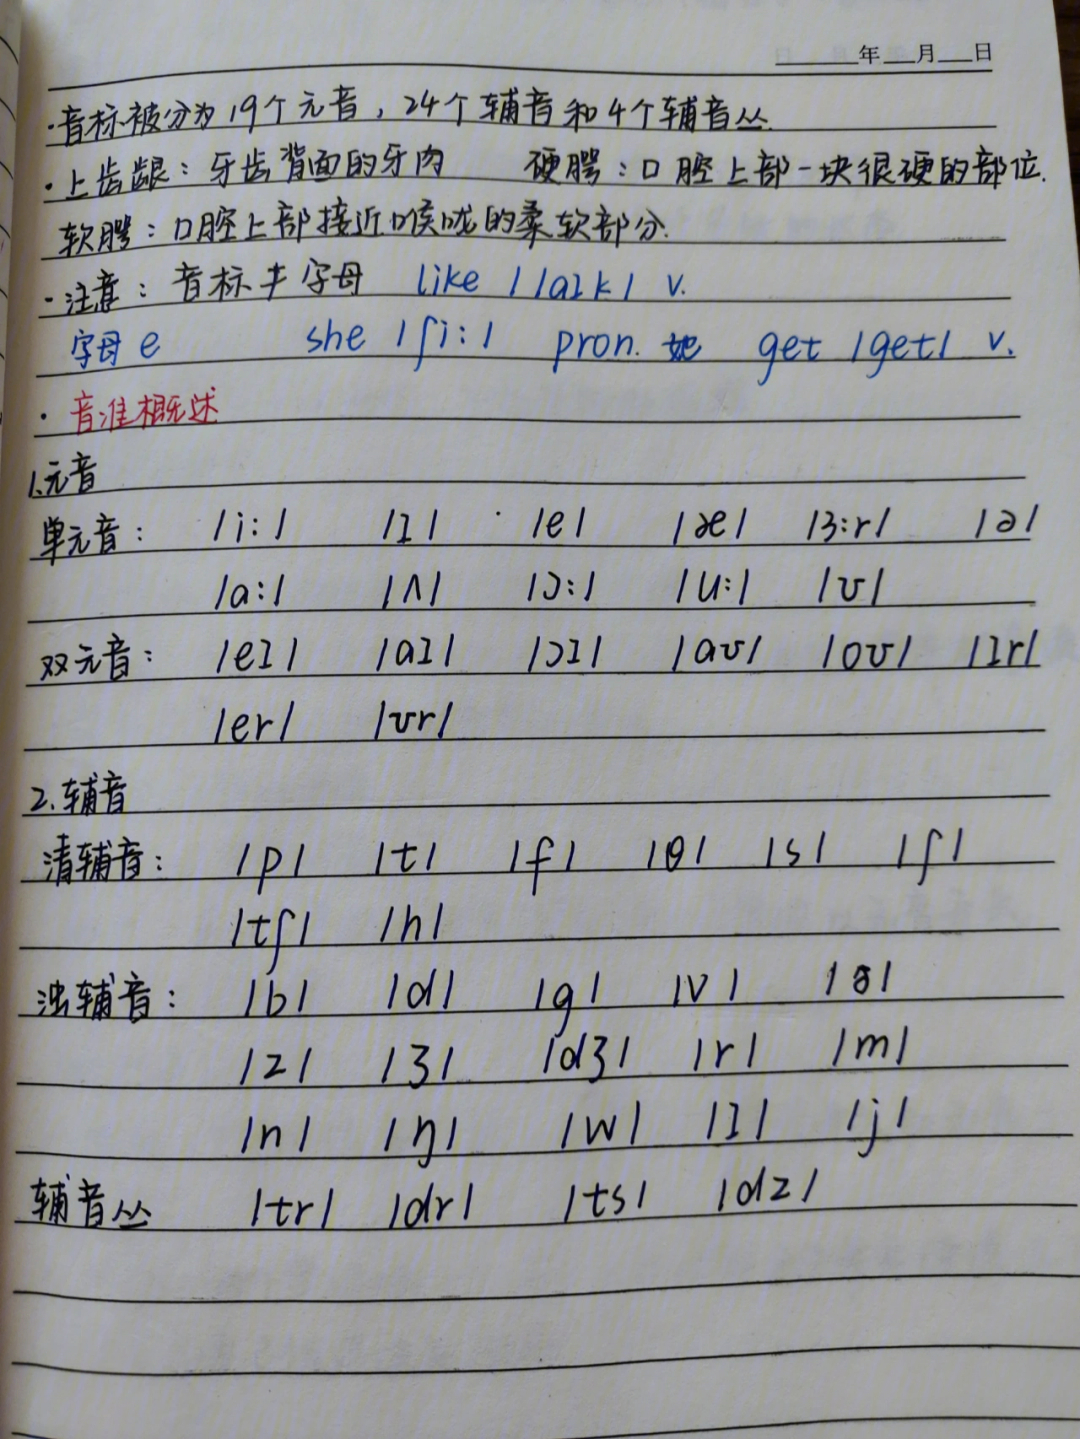 年 月 日
·音标被分为19个元音，24个辅音和4个辅音丛.
·上齿龈：牙齿背面的牙肉 硬腭：口腔上部一块很硬的部位.
软腭：口腔上部接近喉咙的柔软部分.
·注意：音标≠字母 like /laɪk/ v.
字母e she /ʃi:/ pron. 她 get /get/ v.
·音准概述
1.元音
单元音： /i:/ /ɪ/ /e/ /æ/ /ɜ:r/ /ə/
/a:/ /ʌ/ /ɔ:/ /u:/ /ʊ/
双元音： /eɪ/ /aɪ/ /ɔɪ/ /aʊ/ /oʊ/ /ɪr/
/er/ /ʊr/
2.辅音
清辅音： /p/ /t/ /f/ /θ/ /s/ /ʃ/
/tʃ/ /h/
浊辅音： /b/ /d/ /g/ /v/ /ð/
/z/ /ʒ/ /dʒ/ /r/ /m/
/n/ /ŋ/ /w/ /I/ /j/
辅音丛 /tr/ /dr/ /ts/ /dz/